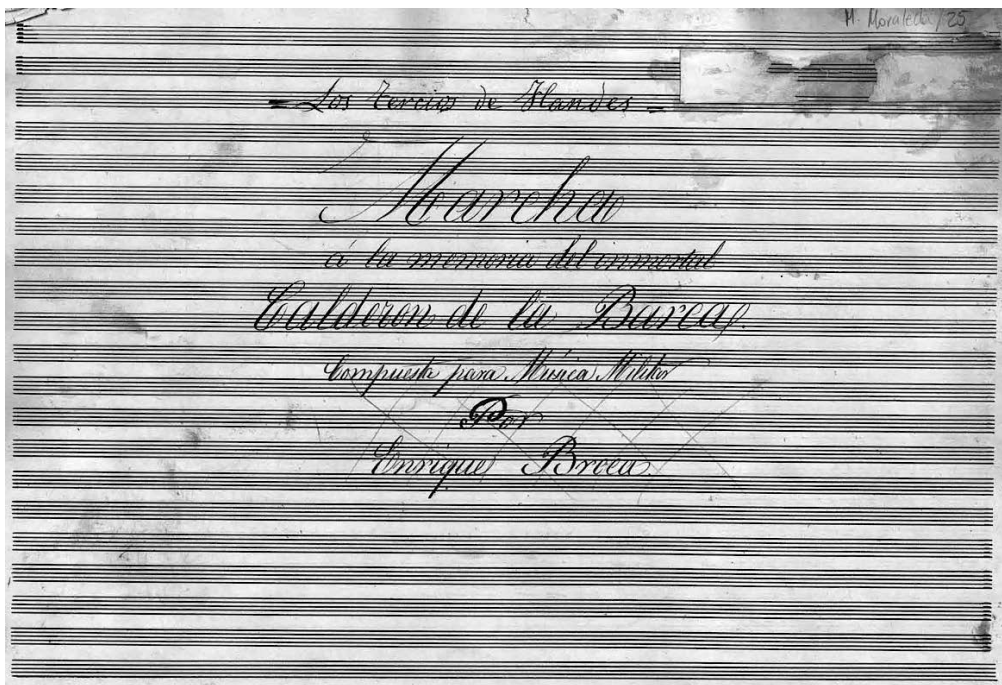 M. Moraleda/25
- Los Tercios de Flandes -
Marcha
á la memoria del inmortal
Calderon de la Barca.
Compuesta para Música Militar
Por
Enrique Broca.